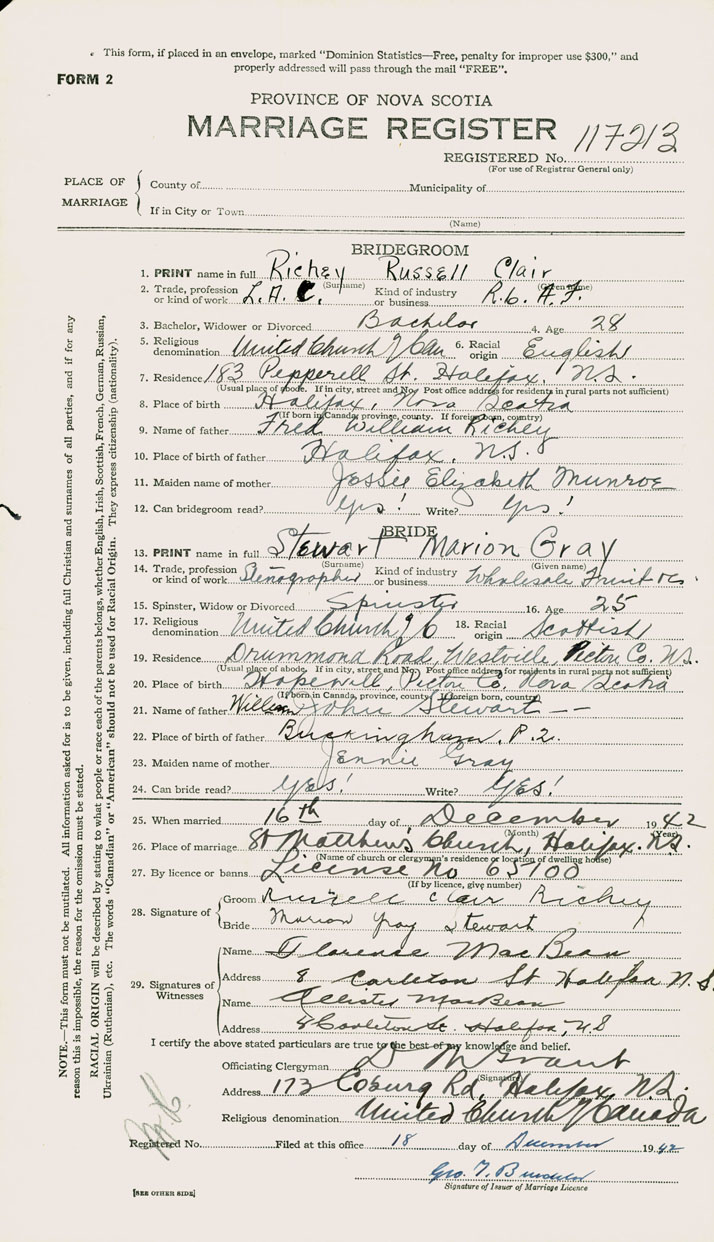 This form, if placed in an envelope, marked "Dominion Statistics—Free, penalty for improper use $300," and
properly addressed will pass through the mail "FREE".
FORM 2
PROVINCE OF NOVA SCOTIA
MARRIAGE REGISTER 117213
REGISTERED No.
(For use of Registrar General only)
PLACE OF MARRIAGE
County of Municipality of
If in City or Town
(Name)
BRIDEGROOM
1. PRINT name in full Richey Russell Clair
(Surname) (Given name)
2. Trade, profession or kind of work L.A.C. Kind of industry or business R.C.A.F.
3. Bachelor, Widower or Divorced Bachelor 4. Age 28
5. Religious denomination United Church of Can 6. Racial origin English
7. Residence 183 Pepperell St. Halifax, N.S.
(Usual place of abode. If in city, street and No. Post office address for residents in rural parts not sufficient)
8. Place of birth Halifax, Nova Scotia
(If born in Canada, province, county. If foreign born, country)
9. Name of father Fred William Richey
10. Place of birth of father Halifax, N.S.
11. Maiden name of mother Jessie Elizabeth Munroe
12. Can bridegroom read? Yes! Write? Yes!
BRIDE
13. PRINT name in full Stewart Marion Gray
(Surname) (Given name)
14. Trade, profession or kind of work Stenographer Kind of industry or business Wholesale Fruit
15. Spinster, Widow or Divorced Spinster 16. Age 25
17. Religious denomination United Church of C 18. Racial origin Scottish
19. Residence Drummond Road, Westville, Pictou Co. N.S.
(Usual place of abode. If in city, street and No. Post office address for residents in rural parts not sufficient)
20. Place of birth Hopewell, Pictou Co. Nova Scotia
(If born in Canada, province, county. If foreign born, country)
21. Name of father William John Stewart
22. Place of birth of father Buckingham, P.Q.
23. Maiden name of mother Jennie Gray
24. Can bride read? YES! Write? YES!
25. When married 16th day of December 1942
(Month) (Year)
26. Place of marriage St Matthew's Church, Halifax. N.S.
(Name of church or clergymen's residence or location of dwelling house)
27. By licence or banns License No 65100
(If by licence, give number)
28. Signature of
Groom Russell Clair Richey
Bride Marion Gray Stewart
29. Signatures of Witnesses
Name Florence MacBean
Address 8 Carleton St Halifax N.S.
Name Allister MacBean
Address 8 Carleton St. Halifax, N.S
I certify the above stated particulars are true to the best of my knowledge and belief.
Officiating Clergyman D M Grant
(Signature)
Address 173 Coburg Rd, Halifax N.S.
Religious denomination United Church of Canada
Registered No. Filed at this office 18 day of December 1942
Geo. T.
Signature of Issuer of Marriage Licence
[SEE OTHER SIDE]
NOTE.—This form must not be mutilated. All information asked for is to be given, including full Christian and surnames of all parties, and if for any
reason this is impossible, the reason for the omission must be stated.
RACIAL ORIGIN will be described by stating to what people or race each of the parents belongs, whether English, Irish, Scottish, French, German, Russian,
Ukrainian (Ruthenian), etc. The words "Canadian" or "American" should not be used for Racial Origin. They express citizenship (nationality).